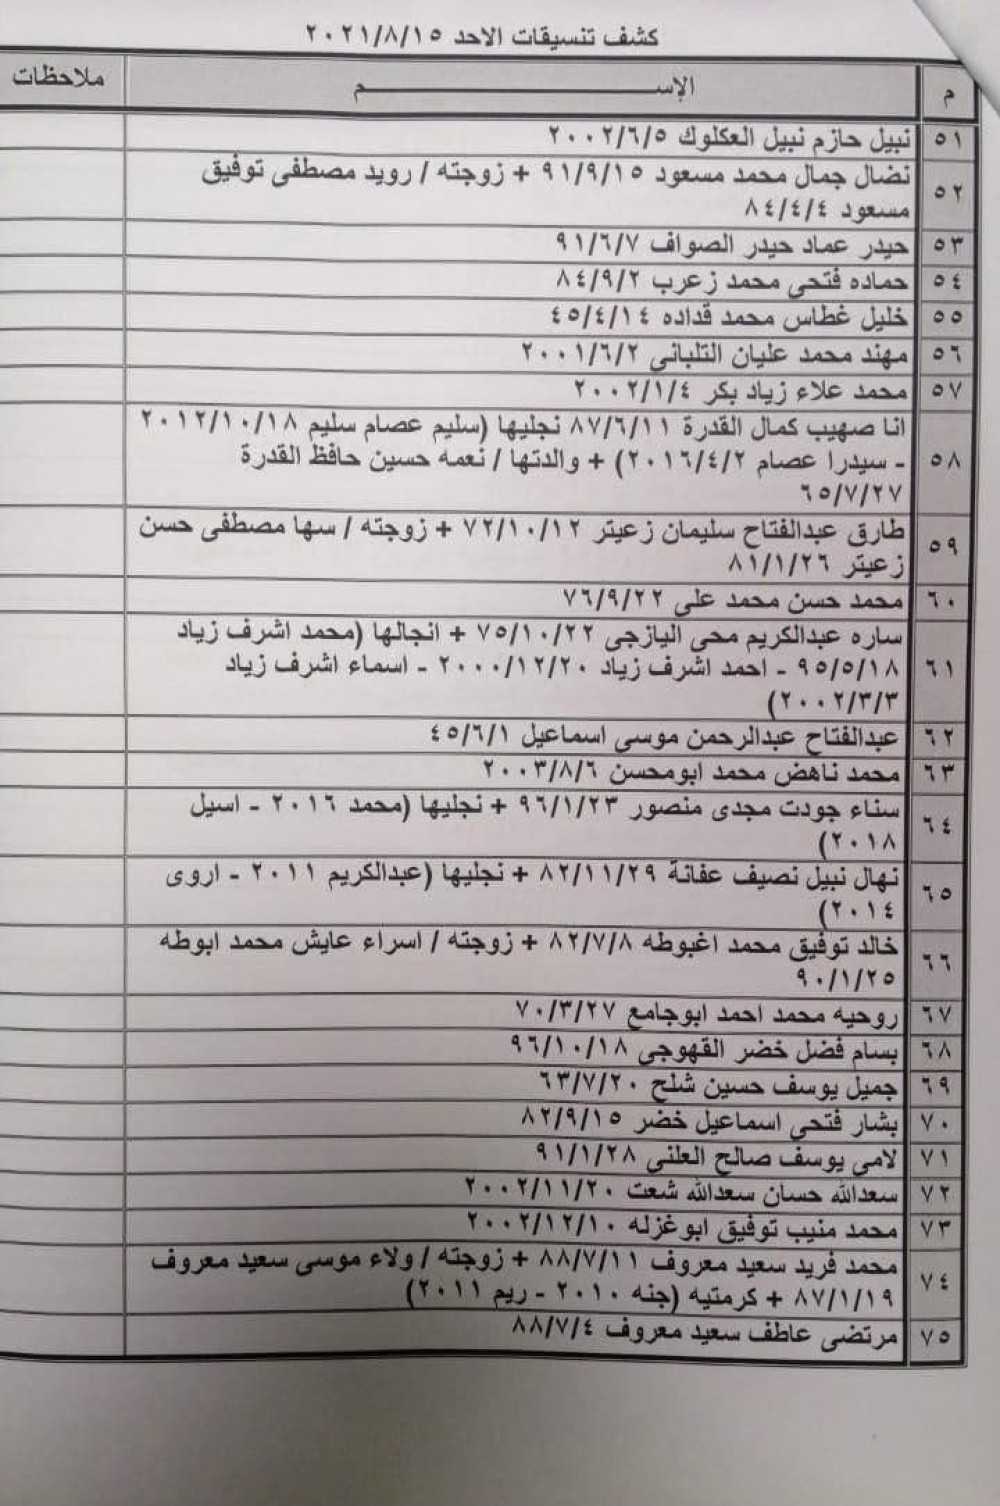 كشف تنسيقات الاحد ٢٠٢١/٨/١٥
م الإســـــــــــم ملاحظات
٥١ نبيل حازم نبيل العكلوك ٢٠٠٢/٦/٥
٥٢ نضال جمال محمد مسعود ٩١/٩/١٥ + زوجته / رويد مصطفى توفيق
مسعود ٨٤/٤/٤
٥٣ حيدر عماد حيدر الصواف ٩١/٦/٧
٥٤ حماده فتحي محمد زعرب ٨٤/٩/٢
٥٥ خليل غطاس محمد قداده ٤٥/٤/١٤
٥٦ مهند محمد عليان التلباني ٢٠٠١/٦/٢
٥٧ محمد علاء زياد بكر ٢٠٠٢/١/٤
٥٨ انا صهيب كمال القدرة ٨٧/٦/١١ نجليها (سليم عصام سليم ٢٠١٢/١٠/١٨
- سيدرا عصام ٢٠١٦/٤/٢) + والدتها / نعمه حسين حافظ القدرة
٦٥/٧/٢٧
٥٩ طارق عبدالفتاح سليمان زعيتر ٧٢/١٠/١٢ + زوجته / سها مصطفى حسن
زعيتر ٨١/١/٢٦
٦٠ محمد حسن محمد علي ٧٦/٩/٢٢
٦١ ساره عبدالكريم محي اليازجي ٧٥/١٠/٢٢ + انجالها (محمد اشرف زياد
٩٥/٥/١٨ - احمد اشرف زياد ٢٠٠٠/١٢/٢٠ - اسماء اشرف زياد
٢٠٠٢/٣/٣)
٦٢ عبدالفتاح عبدالرحمن موسى اسماعيل ٤٥/٦/١
٦٣ محمد ناهض محمد ابومحسن ٢٠٠٣/٨/٦
٦٤ سناء جودت مجدي منصور ٩٦/١/٢٣ + نجليها (محمد ٢٠١٦ - اسيل
٢٠١٨)
٦٥ نهال نبيل نصيف عفانة ٨٢/١١/٢٩ + نجليها (عبدالكريم ٢٠١١ - اروى
٢٠١٤)
٦٦ خالد توفيق محمد اغبوطه ٨٢/٧/٨ + زوجته / اسراء عايش محمد ابوطه
٩٠/١/٢٥
٦٧ روحيه محمد احمد ابوجامع ٧٠/٣/٢٧
٦٨ بسام فضل خضر القهوجي ٩٦/١٠/١٨
٦٩ جميل يوسف حسين شلح ٦٣/٧/٢٠
٧٠ بشار فتحي اسماعيل خضر ٨٢/٩/١٥
٧١ لامي يوسف صالح العلني ٩١/١/٢٨
٧٢ سعدالله حسان سعدالله شعت ٢٠٠٢/١١/٢٠
٧٣ محمد منيب توفيق ابوغزله ٢٠٠٢/١٢/١٠
٧٤ محمد فريد سعيد معروف ٨٨/٧/١١ + زوجته / ولاء موسى سعيد معروف
٨٧/١/١٩ + كرمتيه (جنه ٢٠١٠ - ريم ٢٠١١)
٧٥ مرتضى عاطف سعيد معروف ٨٨/٧/٤